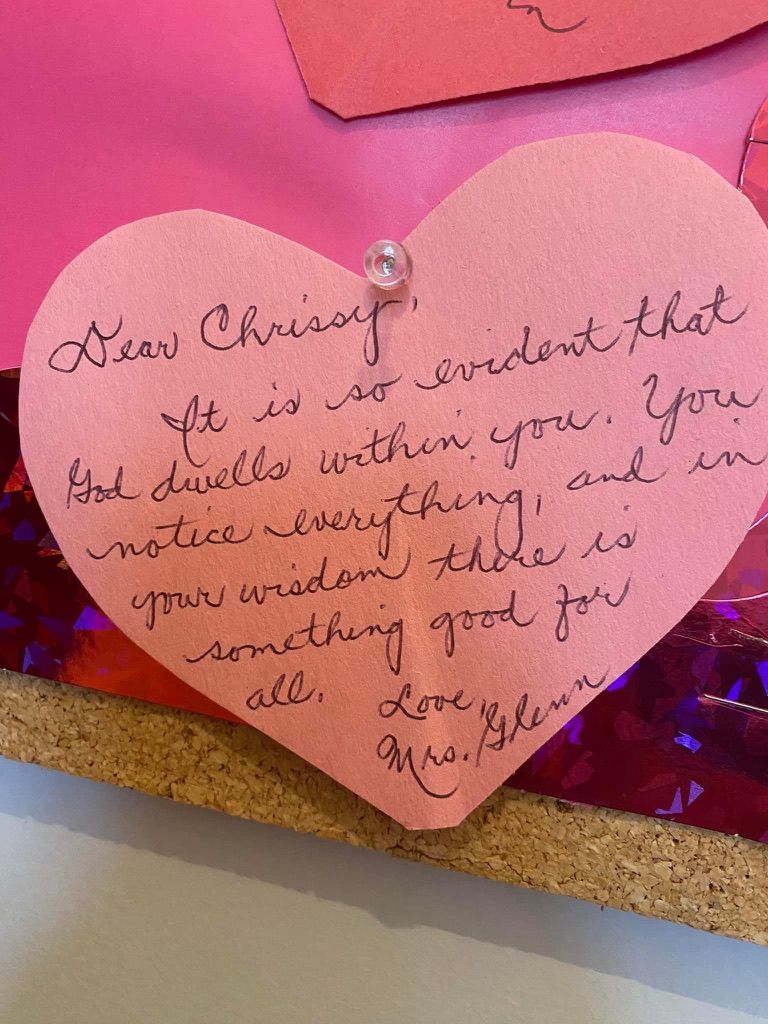 Dear Chrissy,
It is so evident that
God dwells within you. You
notice everything, and in
your wisdom there is
something good for
all. Love,
Mrs. Glenn